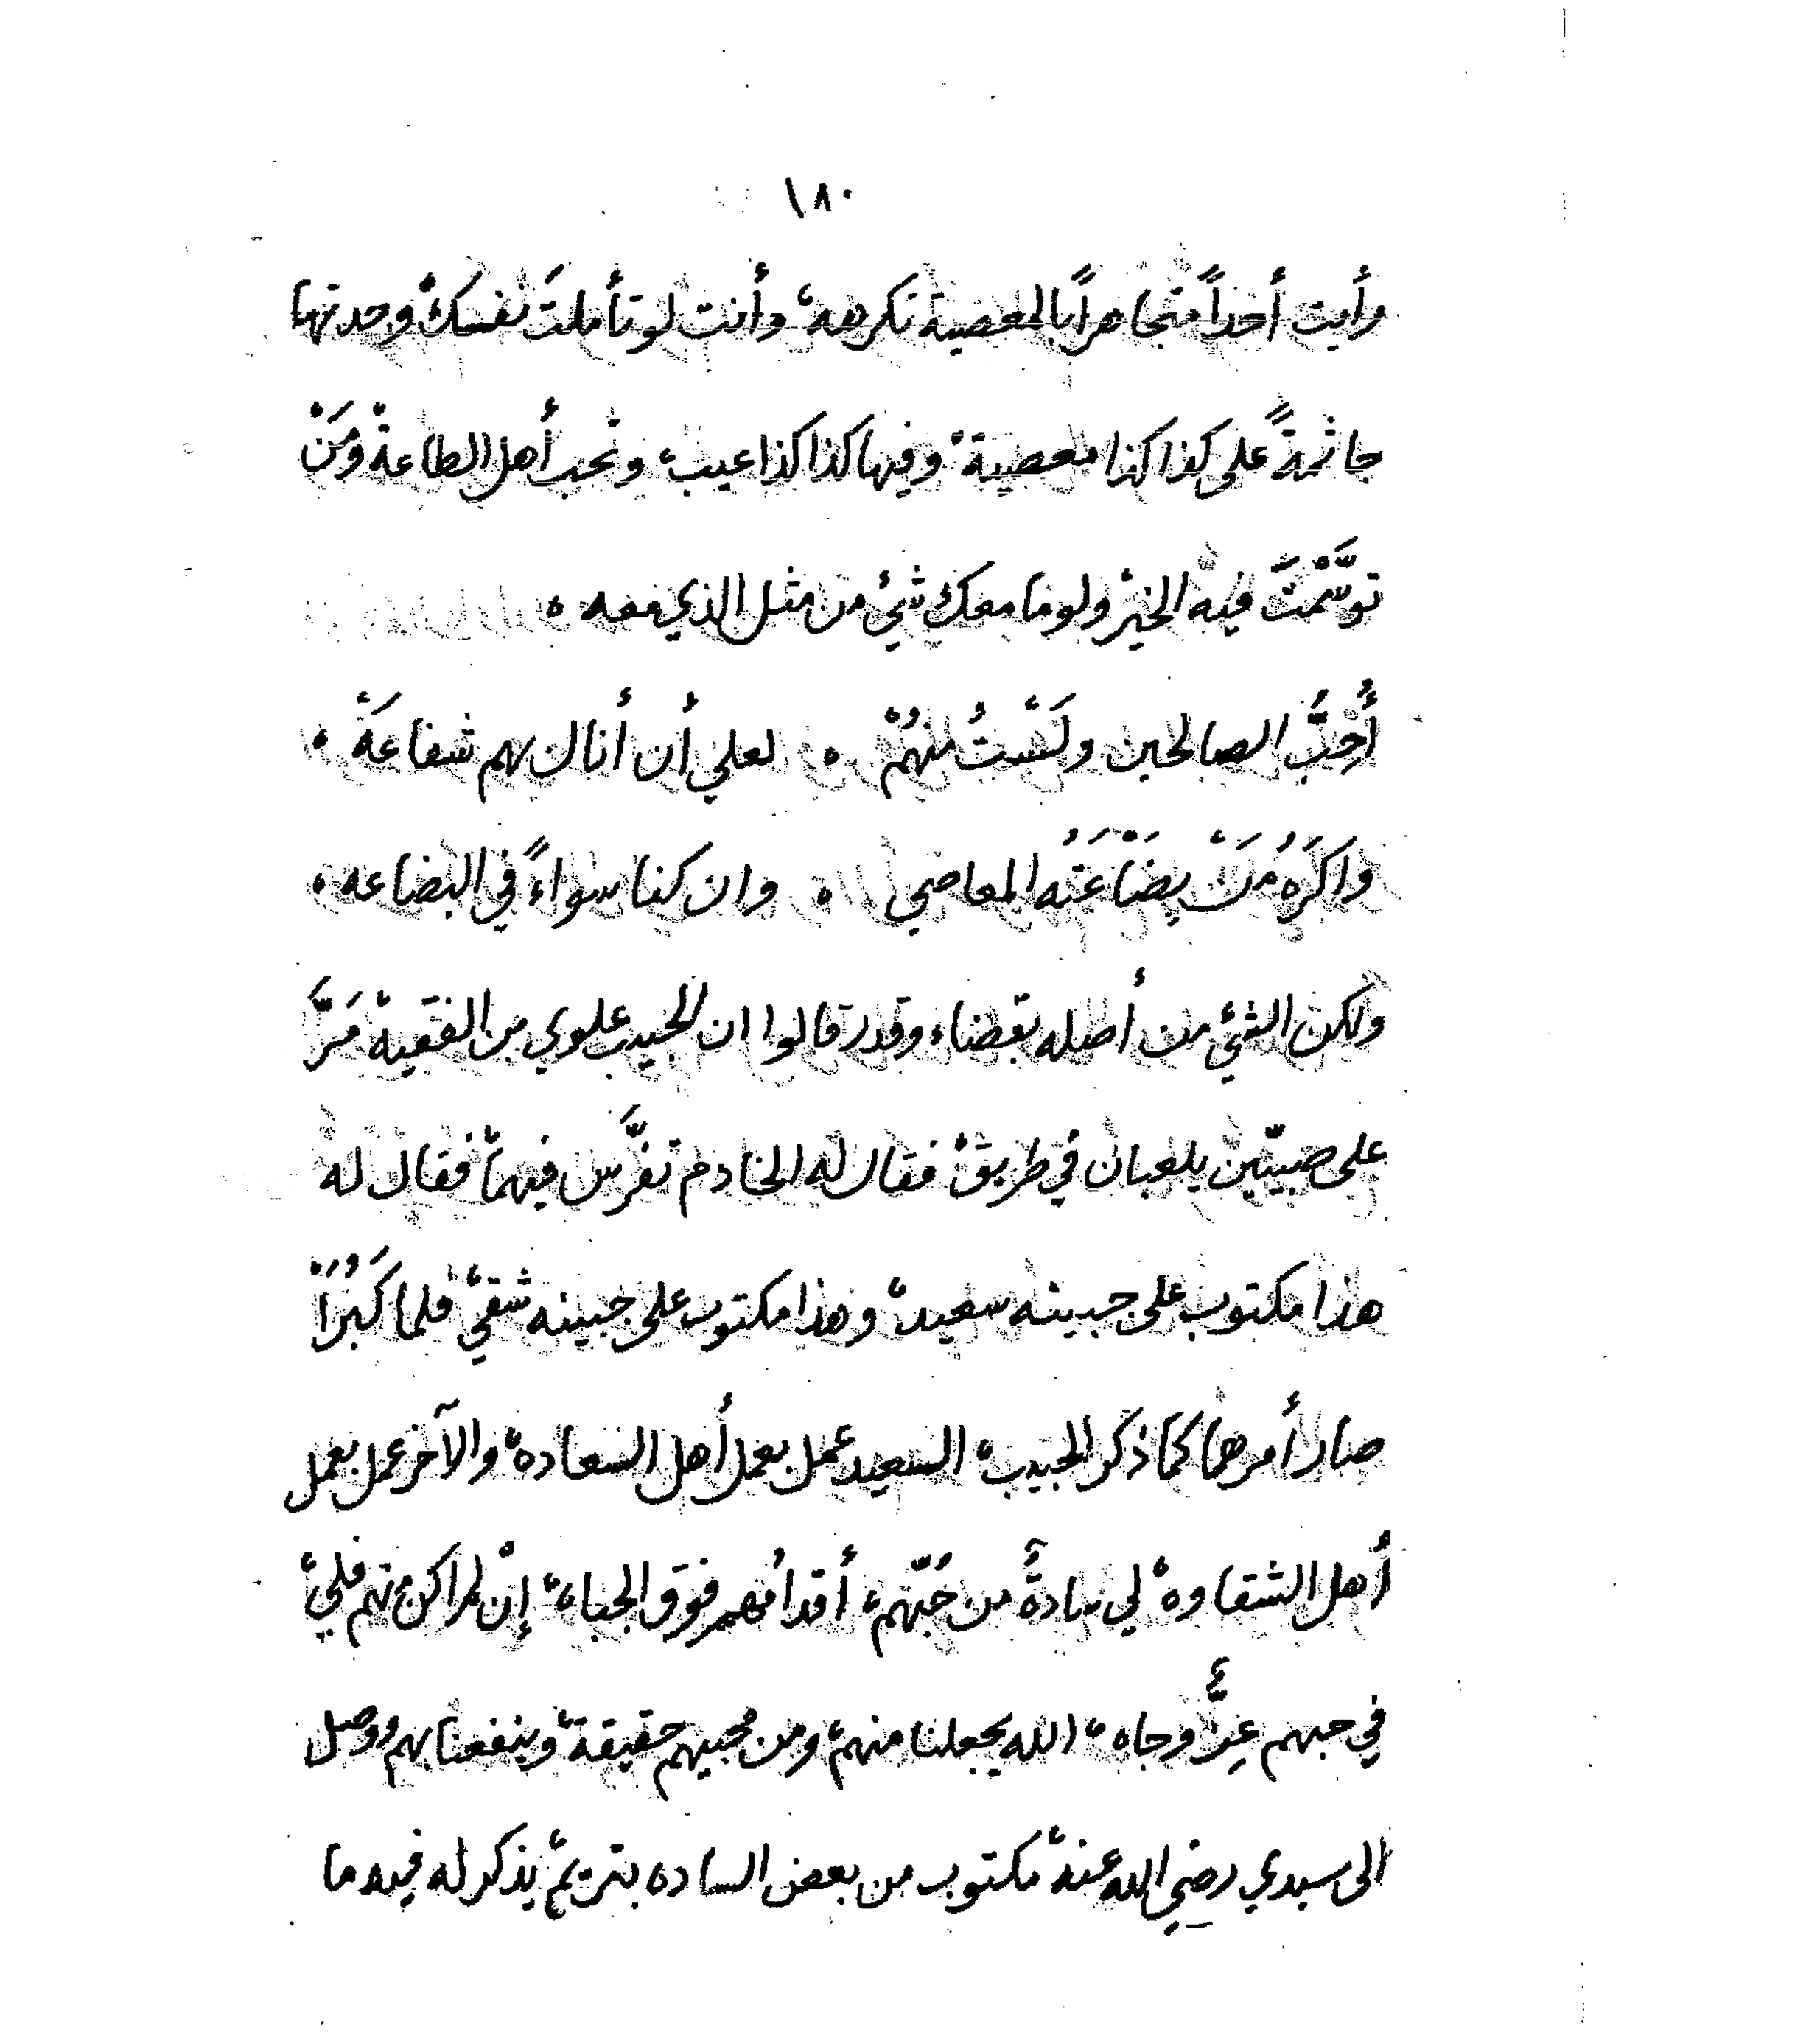 ١٨٠
رأيت أحداً متجاهراً بالمعصية تكرهه، وأنت لو تأملتَ نفسك، وجدتها
جاثمةً على كذا كذا معصية، وفيها كذا كذا عيب، وتحب أهل الطاعة، ومَن
توسَّمْتَ فيه الخير، ولو ما معك شئ من مثل الذي معه ٥
أُحِبُّ الصالحين ولَسْتُ منهُمْ ٥ لعلي أن أنال بهم شفاعَةْ ٥
واكَرَهُ مَنْ بِضَاعَتُه المعاصي ٥ وان كنا سواءً في البضاعه ،
ولكن الشئ من أصله بقضاء وقدر، قالوا ان الحبيب علوي بن الفقيه، مَرَّ
على صبيّين يلعبان في طريق، فقال له الخادم تفرَّس فيهما، فقال له
هذا مكتوب على جبينه سعيد، وهذا مكتوب على جبينه شقي، فلما كَبُرَا،
صار أمرهما كما ذكر الحبيب، السعيد عمل بعمل أهل السعاده، والآخر عمل بعمل
أهل الشقاوه، لي سادةٌ من حُبّهم، أقدامُهم فوق الجباه، إنْ لم اكن منهم فلي،
في حبهم عِزٌّ وجاه، الله يجعلنا منهم، ومن محبيهم حقيقة، وينفعنا بهم، ووصل
الى سيدي رضي الله عنه، مكتوب من بعض الساده بتريم، يذكر له فيه ما